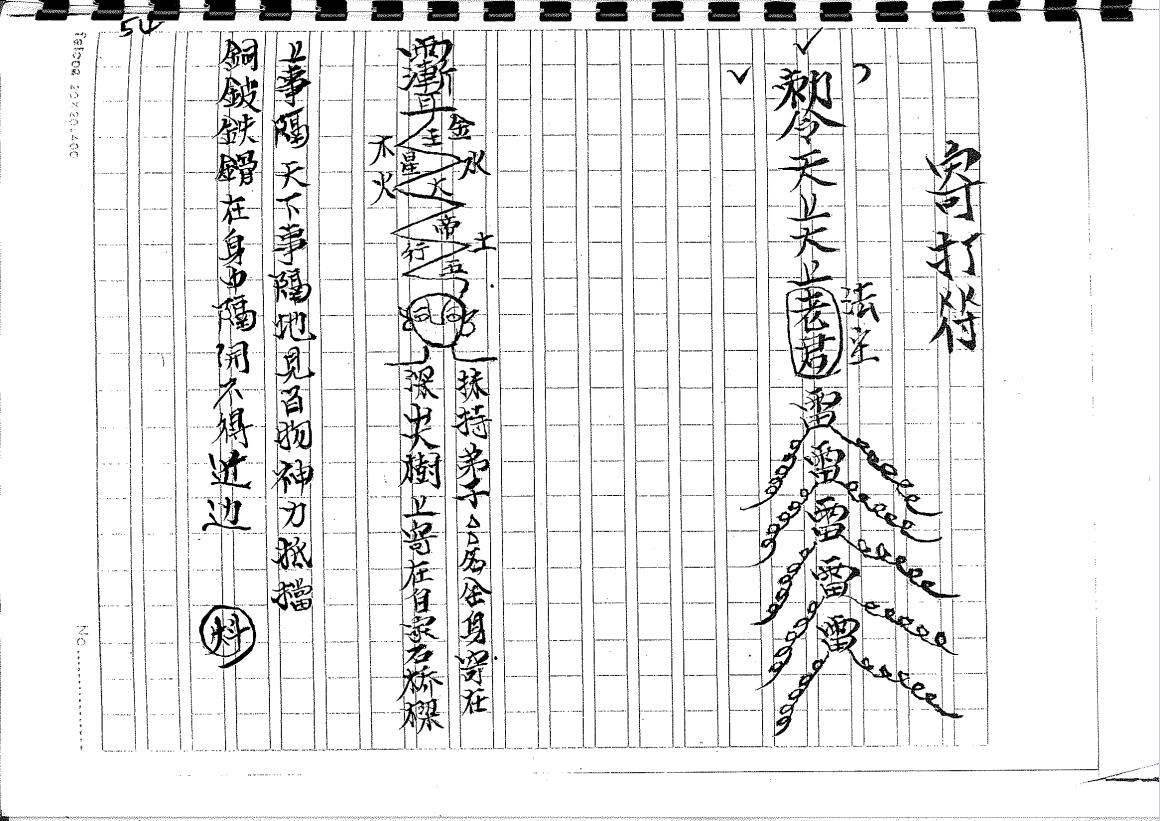 54
寄打符
勅令天上太上老君
法主
雷雷雷雷雷
金水
主星大帝五行
木火
土
扶持弟子厶厶名全身寄在
深山大樹上寄在自家石橋樑
上事隔天下事隔地見百物神力抵擋
銅鈹鉄鏪在身中隔開不得近边
falcon 20×20.400
No.